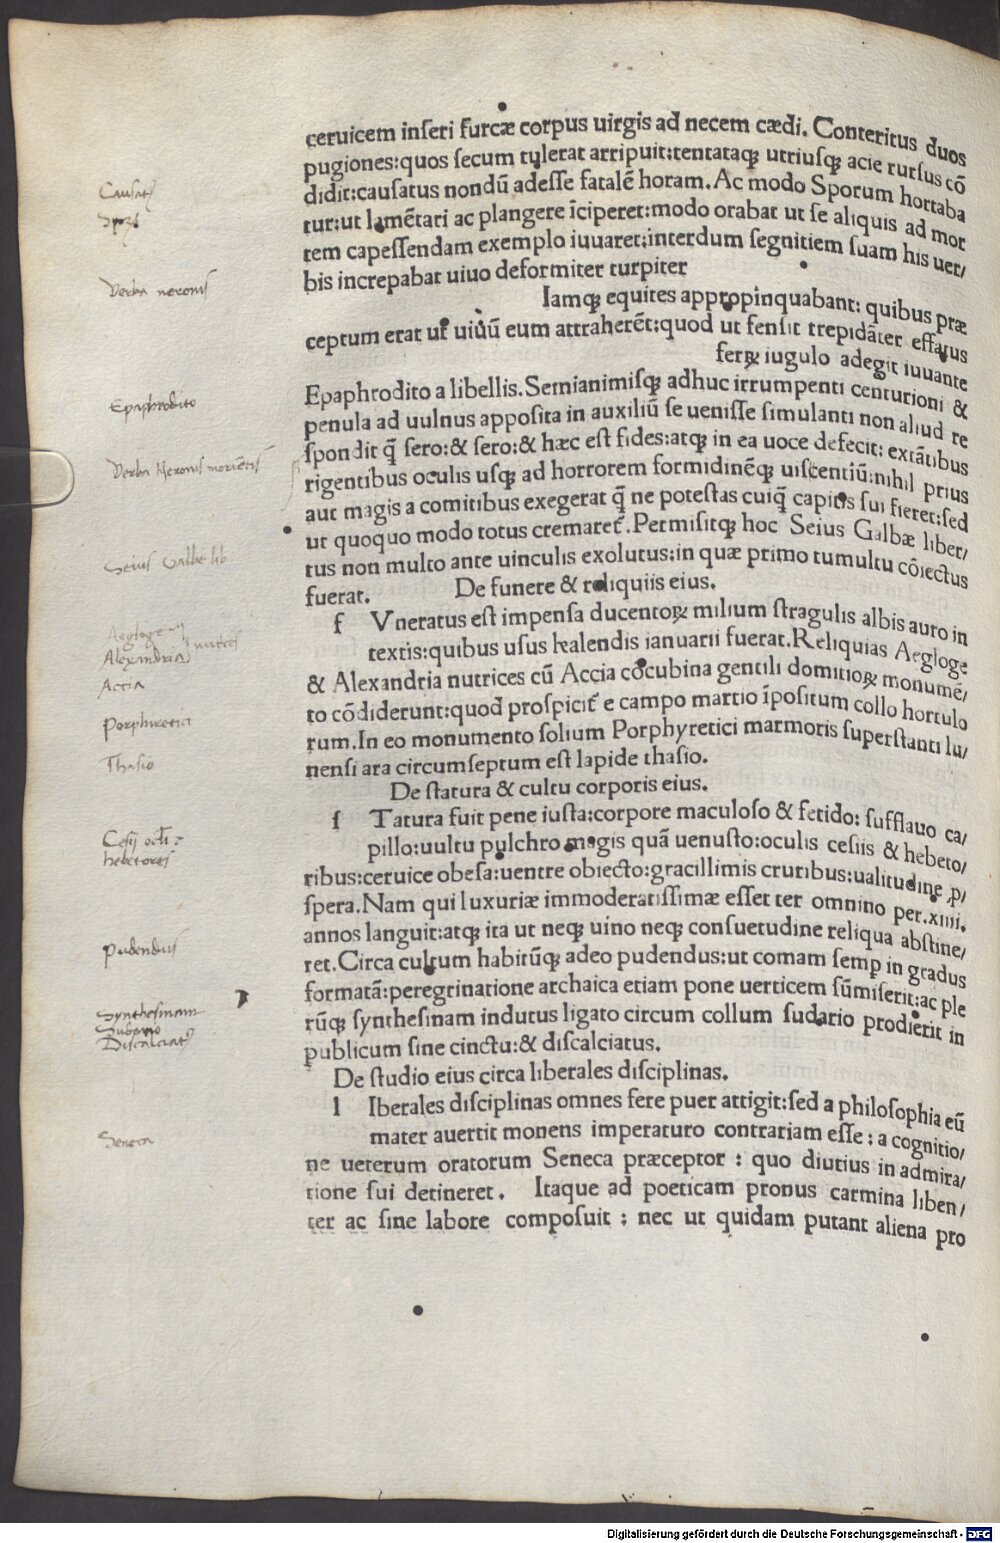 ceruicem inſeri furcæ corpus uirgis ad necem cædi. Conteritus duos
pugiones:quos ſecum tulerat arripuit:tentataꝗ utriuſꝗ acie rurſus cō
didit:cauſatus nondū adeſſe fatalē horam. Ac modo Sporum hortaba
tur:ut lamētari ac plangere īciperet:modo orabat ut ſe aliquis ad mor
tem capeſſendam exemplo iuuaret:interdum ſegnitiem ſuam his uer/
bis increpabat uiuo deformiter turpiter
Iamꝗ equites appropinquabant: quibus præ
ceptum erat ut uiuū eum attraherēt:quod ut ſenſit trepidāter effatus
ferꝝ iugulo adegit iuuante
Epaphrodito a libellis. Semianimiſꝗ adhuc irrumpenti centurioni &
penula ad uulnus appoſita in auxiliū ſe ueniſſe ſimulanti non aliud re
ſpondit q̄ ſero:& ſero:& hæc eſt fides:atꝗ in ea uoce defecit: extātibus
rigentibus oculis uſꝗ ad horrorem formidinēꝗ uiſentiū:nihil prius
aut magis a comitibus exegerat q̄ ne poteſtas cuiꝗ̄ capitis ſui fieret:ſed
ut quoquo modo totus cremaret̄. Permiſitꝗ hoc Seius Galbæ liber/
tus non multo ante uinculis exolutus:in quæ primo tumultu cōiectus
fuerat. De funere & reliquiis eius.
f Vneratus eſt impenſa ducentoꝝ milium ſtragulis albis auro in
textis:quibus uſus kalendis ianuarii fuerat. Reliquias Aegloge
& Alexandria nutrices cū Accia cōcubina gentili domitioꝝ monumē/
to cōdiderunt:quod proſpicit̄ e campo martio īpoſitum collo hortulo
rum. In eo monumento ſolium Porphyretici marmoris ſuperſtanti lu/
nenſi ara circumſeptum eſt lapide thaſio.
De ſtatura & cultu corporis eius.
ſ Tatura fuit pene iuſta:corpore maculoſo & fetido: ſufflauo ca/
pillo:uultu pulchro magis quā uenuſto:oculis ceſiis & hebeto/
ribus:ceruice obeſa:uentre obiecto:gracillimis cruribus:ualitudine ꝓ/
ſpera. Nam qui luxuriæ immoderatiſſimæ eſſet ter omnino per.xiiii.
annos languit:atꝗ ita ut neꝗ uino neꝗ conſuetudine reliqua abſtine/
ret. Circa cultum habitūꝗ adeo pudendus:ut comam ſemꝑ in gradus
formatā:peregrinatione archaica etiam pone uerticem ſūmiſerit:ac ple
rūꝗ ſyntheſinam indutus ligato circum collum ſudario prodierit in
publicum ſine cinctu:& diſcalciatus.
De ſtudio eius circa liberales diſciplinas.
l Iberales diſciplinas omnes fere puer attigit:ſed a philoſophia eū
mater auertit monens imperaturo contrariam eſſe : a cognitio/
ne ueterum oratorum Seneca præceptor : quo diutius in admira/
tione ſui detineret. Itaque ad poeticam pronus carmina liben/
ter ac ſine labore compoſuit : nec ut quidam putant aliena pro
Verba neronis
Epaphrodito
Verba Neronis moriētis
Seius Galbe lib
Aegloge
Alexandria nutrices
Accia
Porphiretici
Thasio
hebetores
Pudendus
Synthesinam
Sudario
Discalciatꝰ
Seneca
Digitalisierung gefördert durch die Deutsche Forschungsgemeinschaft - DFG